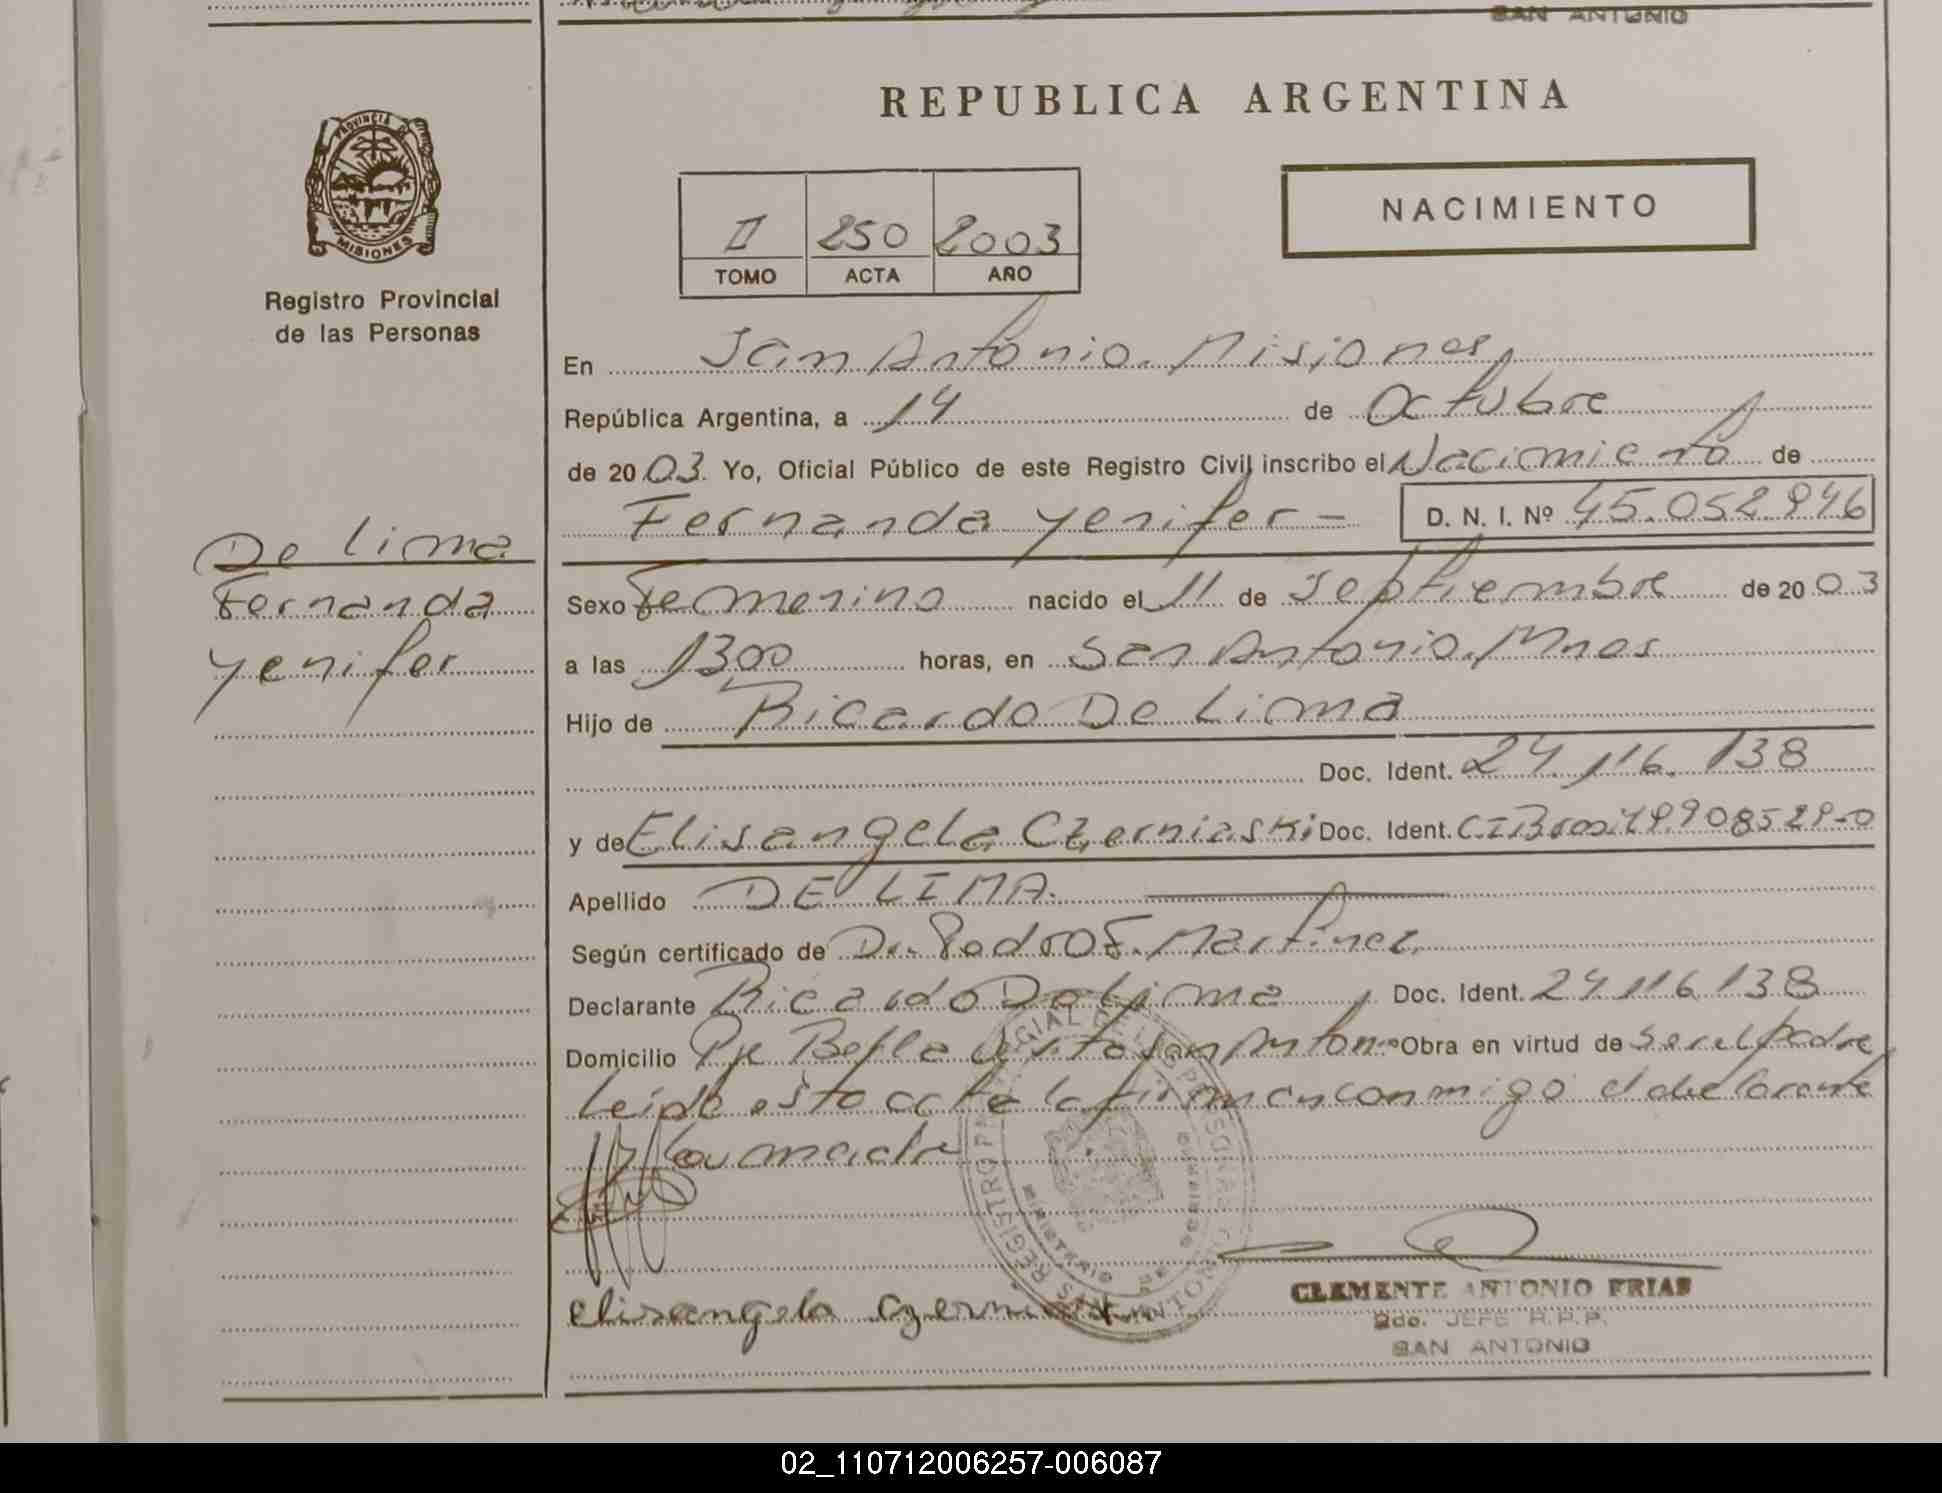 SAN ANTONIO
REPUBLICA ARGENTINA
PROVINCIA DE
MISIONES
Registro Provincial
de las Personas
II 250 2003
TOMO ACTA AÑO
NACIMIENTO
En San Antonio. Misiones,
República Argentina, a 14 de Octubre
de 2003. Yo, Oficial Público de este Registro Civil inscribo el Nacimiento de
Fernanda Yenifer - D. N. I. Nº 45.052.946
De Lima
Fernanda
Yenifer
Sexo Femenino nacido el 11 de Septiembre de 2003
a las 1300 horas, en San Antonio, Mnes
Hijo de Ricardo De Lima
Doc. Ident. 24.116.138
y de Elisangela Czerniaski Doc. Ident. CI Brasil 9.908529-0
Apellido DE LIMA.
Según certificado de Dr. Pedro F. Martinez
Declarante Ricardo De Lima, Doc. Ident. 24.116.138
Domicilio Pje Bella Vista San Antonio Obra en virtud de ser el padre,
Leida esta acta la firman conmigo el declarante
y la madre
elisangela
CLEMENTE ANTONIO FRIAS
2do. JEFE R.P.P.
SAN ANTONIO
02_110712006257-006087